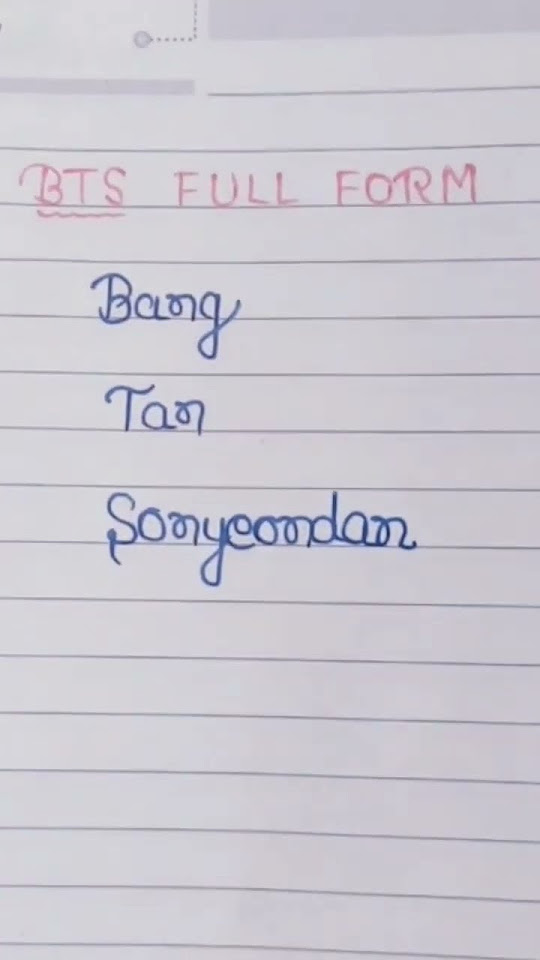 BTS FULL FORM
Bang
Tan
Sonyeondan